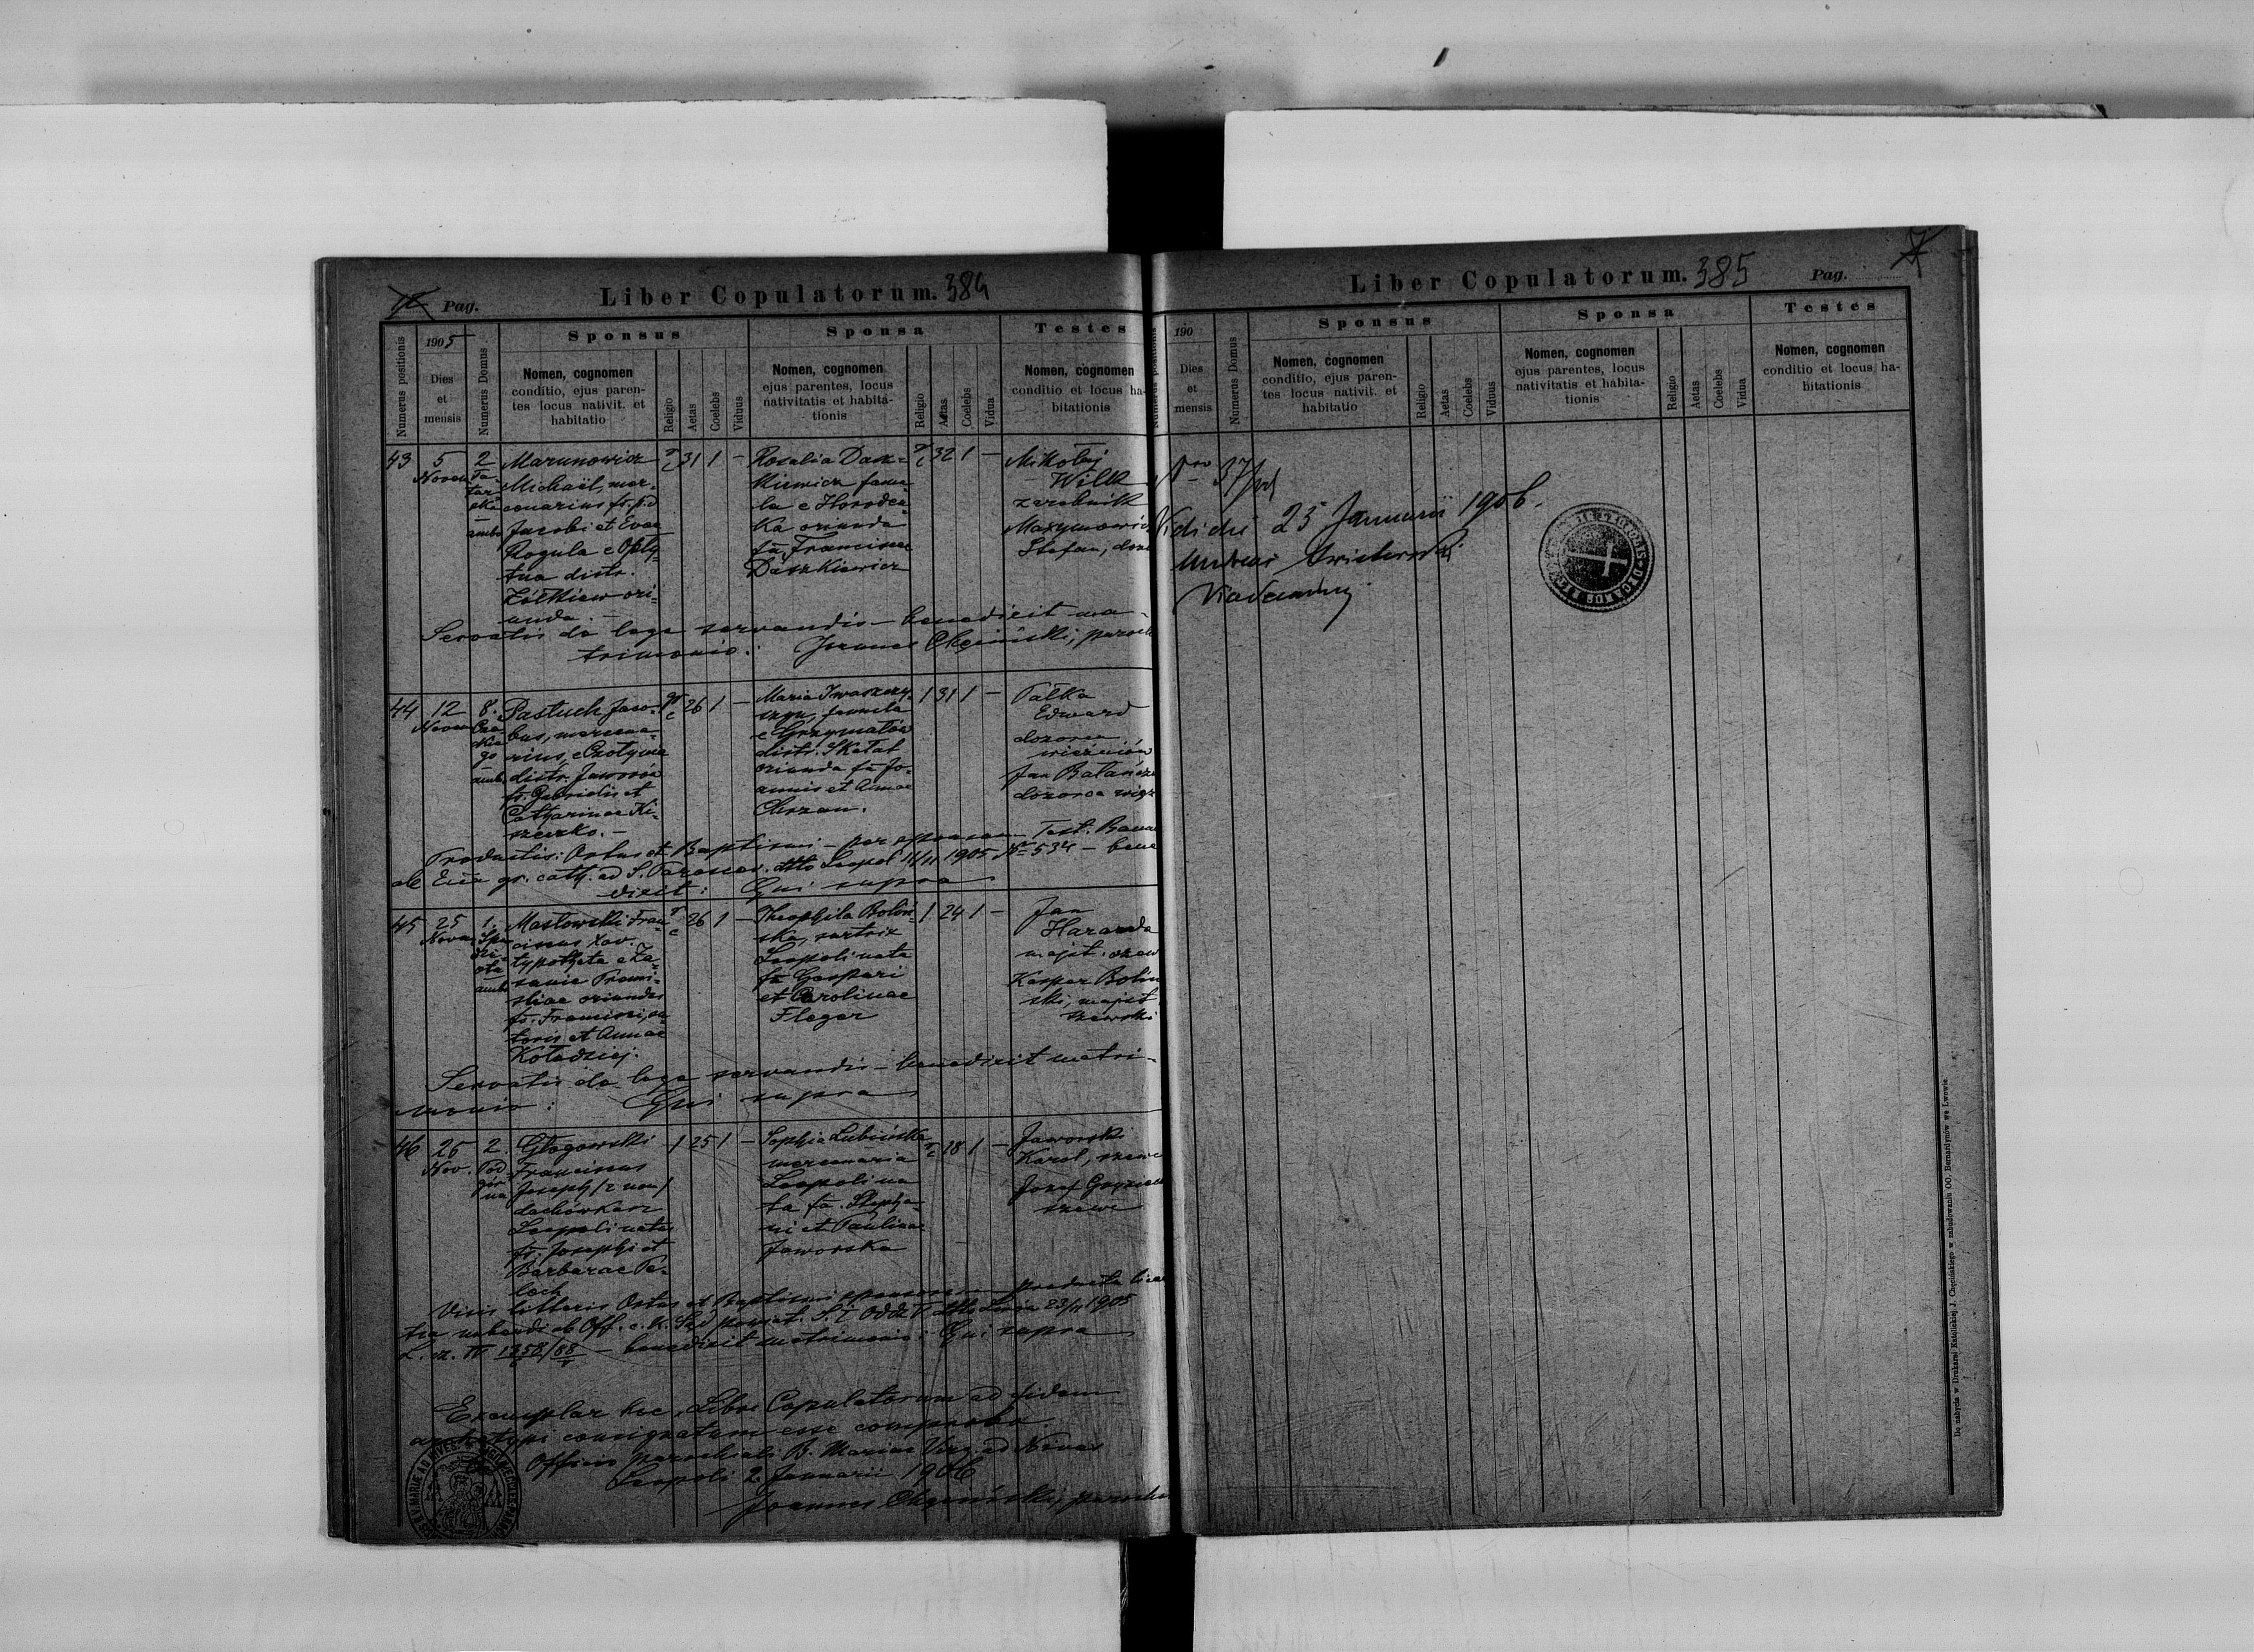 Pag.
Liber Copulatorum. 384
Numerus positionis
1905
Dies
et
mensis
Numerus Domus
Sponsus
Nomen, cognomen
conditio, ejus paren-
tes locus nativit. et
habitatio
Religio
Aetas
Coelebs
Viduus
Sponsa
Nomen, cognomen
ejus parentes, locus
nativitatis et habita-
tionis
Religio
Aetas
Coelebs
Vidua
Testes
Nomen, cognomen
conditio et locus ha-
bitationis
43
5
Novem
2
Ta-
tar-
ska
ambo
Marunowicz
Michaël, mer-
cenarius fs. p.d
Jacobi et Evae
Rogula e Opły-
tna distr.
Żółkiew ori-
unda.
r c 31 1 -
Rosalia Dasz-
kiewicz famu-
la e Horoden-
ka orinda
fa Francisca
Daszkiewicz
r c 32 1 -
Mikołaj
Wilk
zarobnik
Maxymowicz
Stefan, dozo
Servatis de lege servandis - benedixit ma-
trimonio: Joannes Chęciński, paroch
44
12
Novem
8.
ambo
Pastuch Jaco-
bus, mercena-
rius, e Hrotyma
distr. Jaworów
fs. Gabrielis et
Catharinae Ki-
szeczko. -
gr c 26 1 -
Maria Iwaszczy-
szyn, famula
e Grzymałów
distr. Skałat
oriunda fa Jo-
annis et Annae
Chrzan.
1 31 1 -
Pałka
Edward
dozorca
więźniów
Jan Bałan
dozorca więz
Productis: Ortus et Baptismi - per sponsam - Test. Bann
ab Eccl. gr. cath. ad S. Parascev. dtto Leopol 11/11 1905 № 534 - bene
dixit: Qui supra
45
25
Novem
1.
ambo
Masłowski Fran-
ciscus Xav.
typotheta e Za-
sanie Premi-
sliae oriundus
fs. Francisci, su-
toris et Annae
Kołodziej.
r c 26 1 -
Theophila Boliń-
ska, sartrix
Leopoli nata
fa Gaspari
et Carolinae
Fleger
1 24 1 -
Jan
Haranda
majst. szew
Kasper Boliń
ski, majst
szewski
Servatis de lege servandis - benedixit matri-
monio: Qui supra
46
26
Nov.
2.
Pod
gór
na
Głogowski
Franciscus
Joseph /2 nom/
dachówkarz
Leopoli natus
fs. Josephi et
Barbarae Pa-
loch
1 25 1 -
Sophia Lubińska
mercenaria
Leopoli na
ta fa. Stepha-
ni et Paulinae
Jaworska
r c 18 1 -
Jaworski
Karol, szewc
Józef
szewc
Visis litteris Ortus et Baptismi sponsorum - producta licen
tia nubendi ab Off. c. k. Sąd powiat. S. I Oddz V dtto Lwów 23/11 1905
L. cz. IV 1358/88 - benedixit matrimonio: Qui supra
Exemplar hoc Libri Copulatorum ad fidem
archetypi consignatum esse comprobo.
Officio parochiali B. Mariae Virg. ad Nives
Leopoli 2. Januarii 1906
Joannes Chęciński, parochus
Liber Copulatorum. 385
Pag.
Numerus positionis
190
Dies
et
mensis
Numerus Domus
Sponsus
Nomen, cognomen
conditio, ejus paren-
tes locus nativit. et
habitatio
Religio
Aetas
Coelebs
Viduus
Sponsa
Nomen, cognomen
ejus parentes, locus
nativitatis et habita-
tionis
Religio
Aetas
Coelebs
Vidua
Testes
Nomen, cognomen
conditio et locus ha-
bitationis
Nro 37
Vidi die 25 Januarii 1906.
Do nabycia w Drukarni Katolickiej J. Chęcińskiego w zabudowaniu OO. Bernardynów we Lwowie